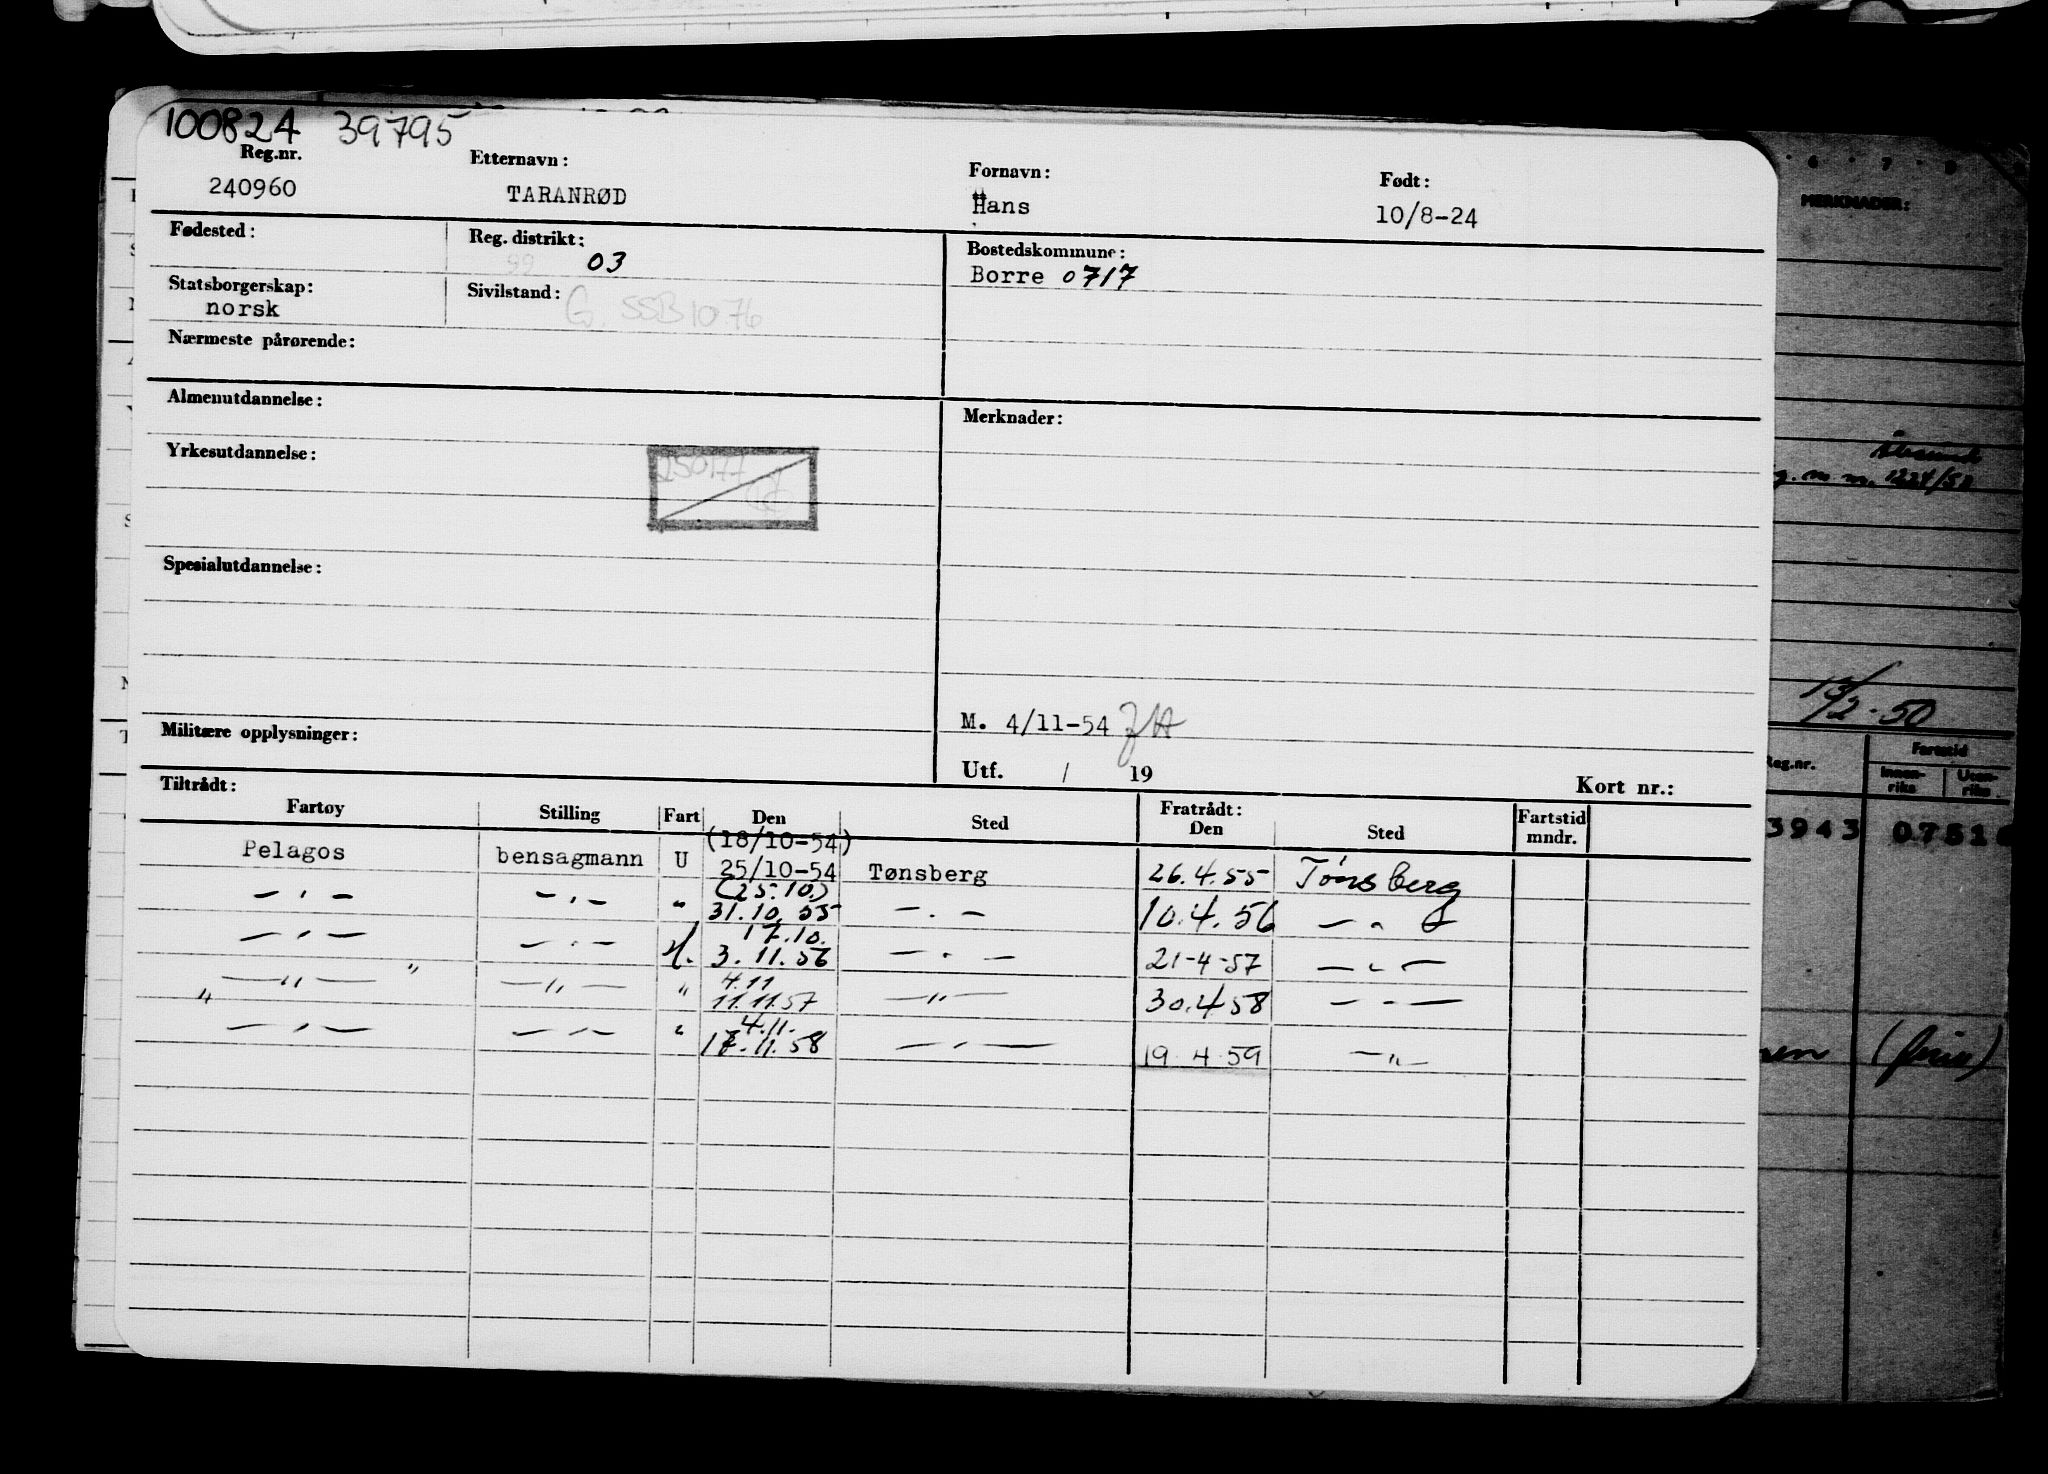 100824 39795
Reg.nr. Etternavn: Fornavn: Født:
240960 TARANRØD Hans 10/8-24
Fødested: Reg. distrikt: Bostedskommune:
99 03 Borre 0717
Statsborgerskap: Sivilstand:
norsk G. SSB1076
Nærmeste pårørende:
Almenutdannelse: Merknader:
Yrkesutdannelse:
250177
Spesialutdannelse:
M. 4/11-54
Militære opplysninger:
Utf. / 19 Kort nr.:
Tiltrådt: Fratrådt:
Fartøy Stilling Fart Den Sted Den Sted Fartstid mndr.
(18/10-54)
Pelagos bensagmann U 25/10-54 Tønsberg 26.4.55 Tønsberg
(25.10.)
— " — — " — " 31.10.55 — " — 10.4.56 — " —
17.10.
— " — — " — 3.11.56 — " — 21-4-57 — " —
4.11
— " — — " — " 11.11.57 — " — 30.4.58 — " —
4.11.
— " — — " — " 17.11.58 — " — 19.4.59 — " —
6 7 8
MERKNADER:
1224/50
13/2-50
Reg.nr. Fartstid
Innen-riks Uten-riks
3943 0751